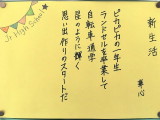 Jr High School
新生活
華心
ピカピカの一年生
ランドセルを卒業して
自転車通学
星のように輝く
思い出作りのスタートだ